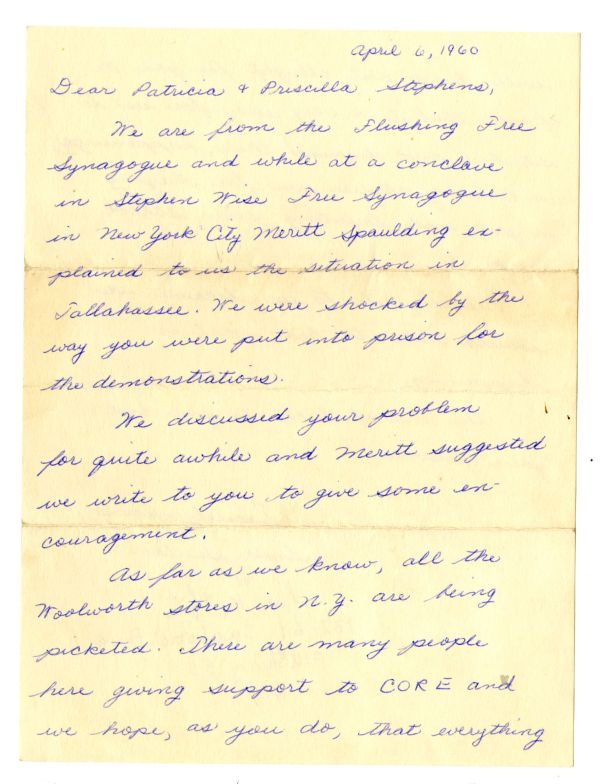 April 6, 1960
Dear Patricia & Priscilla Stephens,
We are from the Flushing Free
Synagogue and while at a conclave
in Stephen Wise Free Synagogue
in New York City Meritt Spaulding ex-
plained to us the situation in
Tallahassee. We were shocked by the
way you were put into prison for
the demonstrations.
We discussed your problem
for quite awhile and Meritt suggested
we write to you to give some en-
couragement.
As far as we know, all the
Woolworth stores in N.Y. are being
picketed. There are many people
here giving support to CORE and
we hope, as you do, that everything